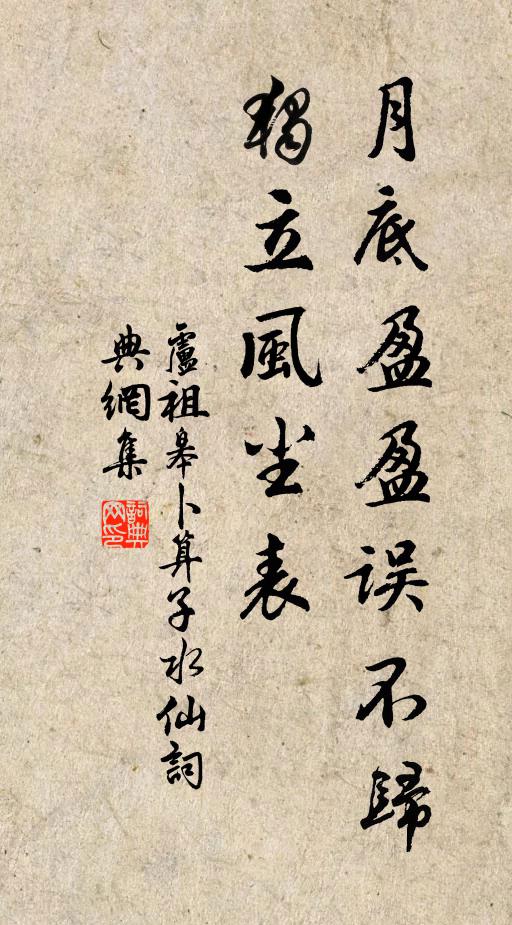 月底盈盈误不歸
獨立風尘表
盧祖皋卜算子水仙詞
典網集
詞典網印